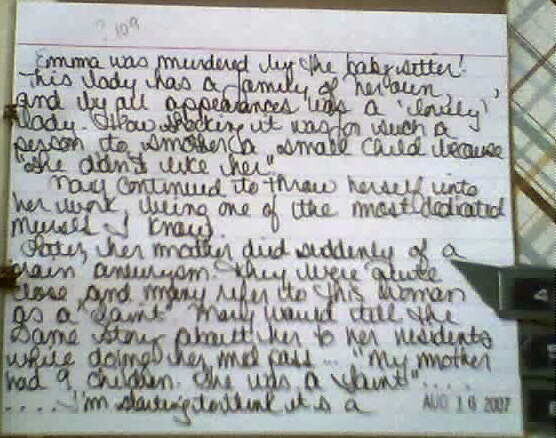 ? 109
Emma was murdered by the babysitter!
This lady has a family of her own,
and by all appearances was a 'lovely'
lady. How shocking it was for such a
person to smother a small child because
"she didn't like her".
Mary continued to throw herself into
her work, being one of the most dedicated
myself I know.
Later, her mother died suddenly of a
brain aneurysm. They were quite
close, and many refer to this woman
as a "saint". Mary would tell the
same story about her to her residents
while doing her med pass... "My mother
had 9 children. She was a saint"....
.... I'm starting to think it is a
AUG 16 2007